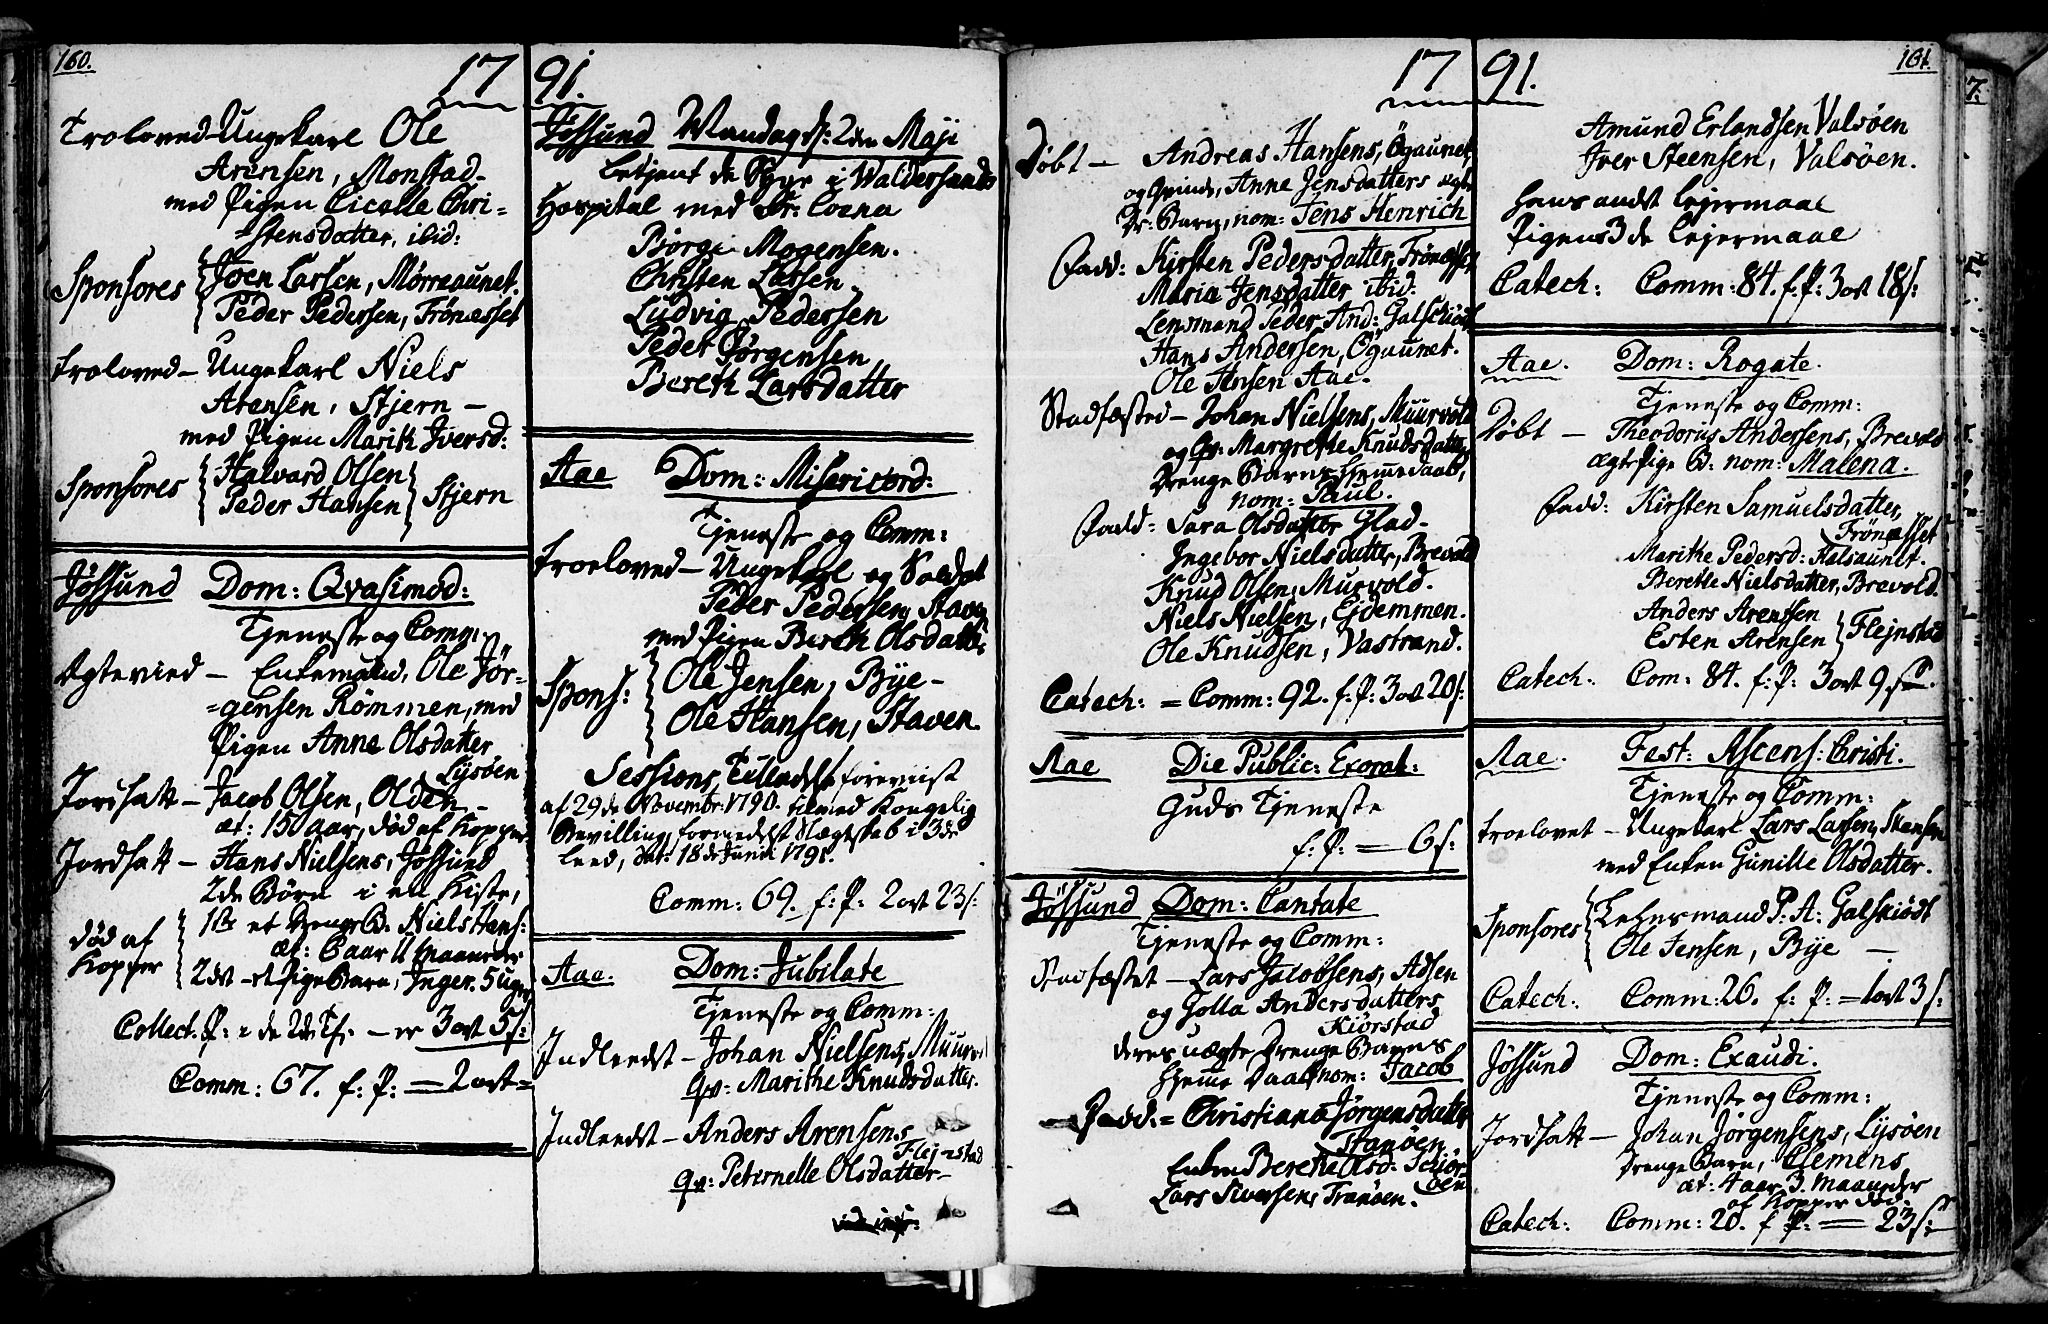 160.
1791.
Troloved - Ungekarl Ole
Arensen, Monstad -
med Pigen Cicelle Chri-
stensdatter, ibid:
Sponsores
Joen Larsen, Mørreaunet.
Peder Pedersen, Frönesset
troloved - Ungekarl Niels
Arensen, Stjern -
med Pigen Marith Iversd:
Sponsores
Halvard Olsen
Peder Hansen
Stjern
Jössund Dom: Qvasimod:
Tjeneste og Comm:
Ægtevied - Enkemand, Ole Jör-
=gensen Römmen, med
Pigen Anne Olsdatter
Lysöen
Jordsatt - Jacob Olsen, Olden -
æt: 15 0 aar, död af Kopper
Jordsatt - Hans Nielsens, Jössund
2de Börn i en Kiste,
död af
Kopper
1ste et Drenge B. Niels Hans:
æt: 6 aar 11 maaneder
2det - et Pige Barn, Inger. 5 uger
Collect. P: 2de Tf. - er 3 ort 5 s:
Comm: 67. f: P: = 2 ort =
Jössund Mandag d: 2den Maji
betjent de Syge i Waldersunds
Hospital med Sr: Coena
Björgi Mogensen.
Christen Larsen
Ludvig Pedersen
Peder Jörgensen
Bereth Larsdatter
Aae Dom: Misericord:
Tjeneste og Comm:
troeloved - Ungekarl og Soldat
Peder Pedersen, Staven
med Pigen Bereth Olsdatter
Spons:
Ole Jensen, Bye -
Ole Hansen, Staven
Sessions Tilladelse foreviist
af 29de Novembr: 1790. tilmed Kongelig
Bevilling formedelst Slægtskab i 3de
leed, dat: 18de Junii 1791.
Comm: 69. f: P: 2 ort 23 s:
Aae. Dom: Jubilate
Tjeneste og Comm:
Indleedt - Johan Nielsens, Muurv
Qv: Marithe Knudsdatter.
Indleedt - Anders Arensens
Flejnstad
Qv: Peternelle Olsdatter -
1791.
161.
Döbt - Andreas Hansens, Ögaunet
og Qvinde, Anne Jensdatters ægte
Dr: Barn, nom: Jens Henrich
Fadd: Kirsten Pedersdatter, Frönesset
Maria Jensdatter ibid:
Lensmand Peder And: Galschiödt
Hans Andersen, Ögaunet.
Ole Hansen Aae.
Stadfæsted - Johan Nielsens, Muurvold
og Qv: Margrethe Knudsdatter
Drenge Barns hjemmedaab,
nom: Paul.
Fadd: Sara Olsdatter Glad-
Ingebor Nielsdatter, Brevold
Knud Olsen, Murvold.
Niels Nielsen, Ejdemmen.
Ole Knudsen, Vastrand.
Catech: = Comm: 92. f: P: 3 ort 20 s:
Aae Die Public: Exorat:
Guds Tjeneste
f: P: = 6 s:
Jössund Dom: Cantate
Tjeneste og Comm:
Stadfæstet - Lars Jacobsens, Adsen
og Golla Andersdatters
Kiörstad
deres uægte Drenge Barns
hjemme Daab nom: Jacob
Fadd: = Christiana Jörgensdatter
Tranöen.
Enken Berethe Olsd: Schjör
öen
Lars Siversen, Tranöen.
Amund Erlandsen Valsöen
Iver Steensen, Valsöen.
hans andet Lejermaal
Pigens 3de Lejermaal
Catech: Comm: 84. f: P: 3 ort 18 s:
Aae. Dom: Rogate.
Tjeneste og Comm:
Döbt - Theodorius Andersens, Brevold
ægte Pige B: nom: Malena.
Fadd: Kirsten Samuelsdatter,
Frönesset
Marithe Pedersd: Kalsaunet.
Berethe Nielsdatter, Brevold.
Anders Arentsen
Esten Arensen
Flejnstad
Catech: Com: 84. f: P: 3 ort 9 s:
Aae. Fest: Ascens: Christi.
Tjeneste og Comm:
troelovet - Ungekarl Lars Larsen, Skansen
med Enken Gunille Olsdatter.
Sponsores
Lehnsmand P: A: Galskiödt
Ole Jensen, Bye -
Catech: Comm: 26. f: P: = 1 ort 3 s:
Jössund Dom: Exaudi.
Tjeneste og Comm:
Jordsatt - Johan Jörgensens, Lysöen
Drenge Barn, Clemens
æt: 4 aar 3 maaneder
af Kopper död
Catech: Comm: 20. f: P: = 23 s: